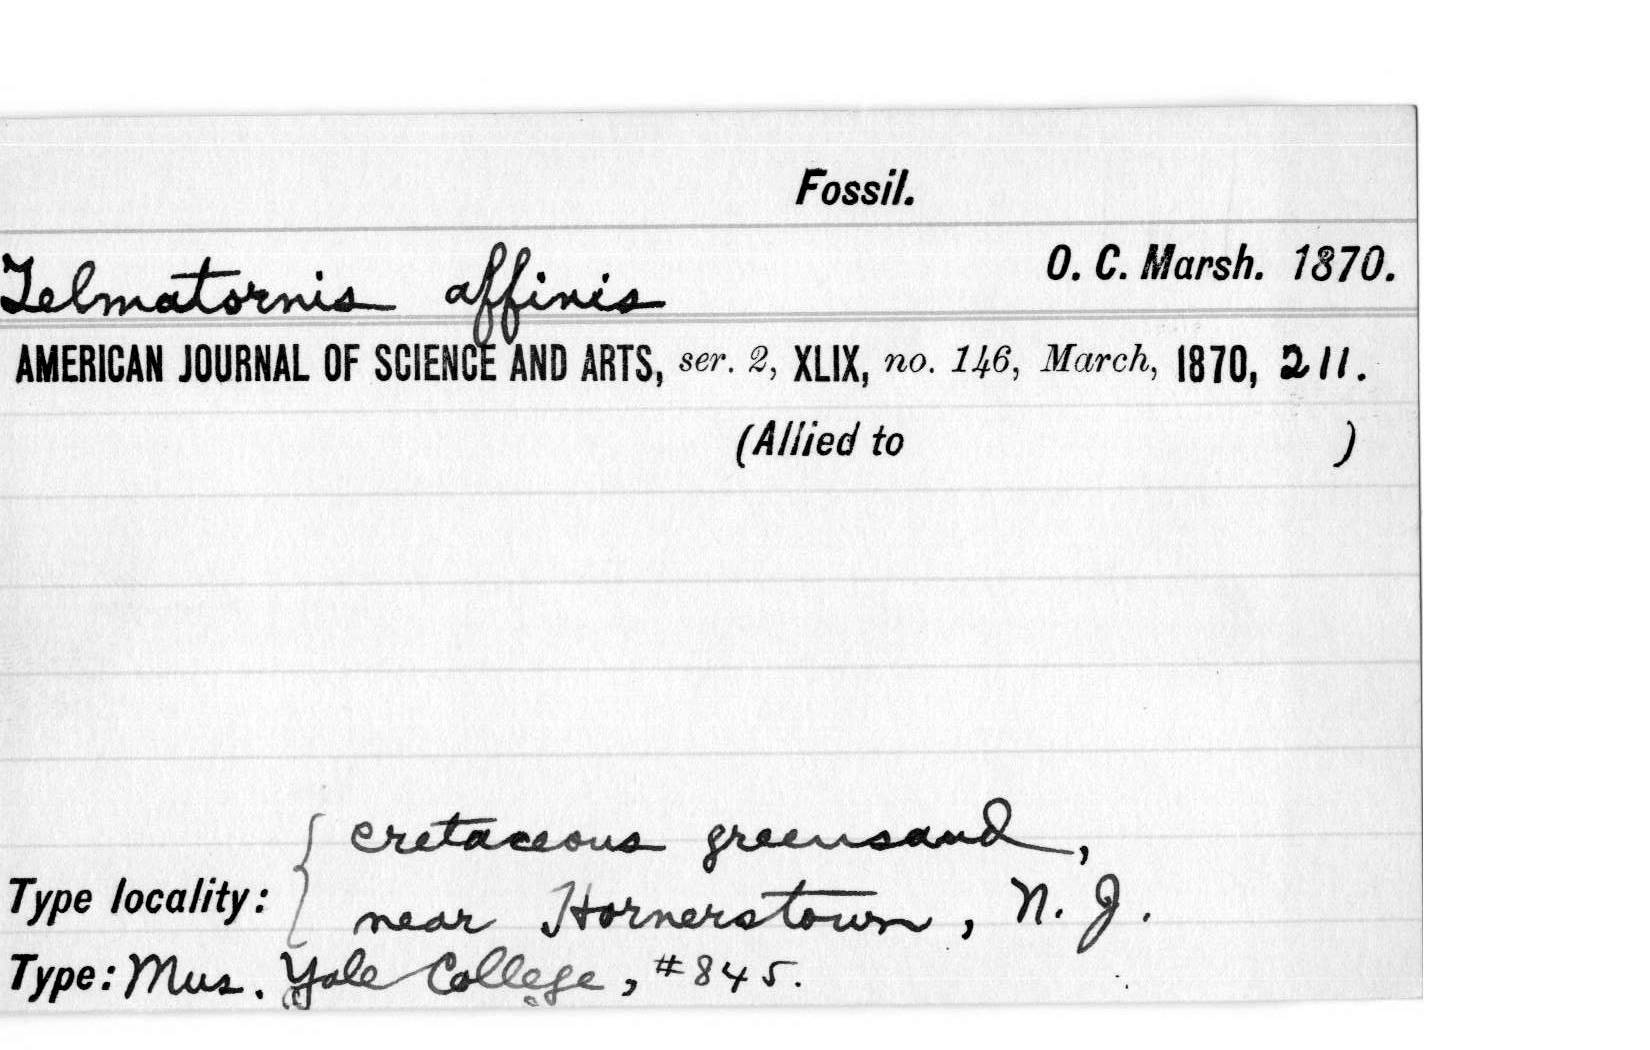 Fossil.
Telmatornis affinis O. C. Marsh. 1870.
AMERICAN JOURNAL OF SCIENCE AND ARTS, ser. 2, XLIX, no. 146, March, 1870, 211.
(Allied to )
cretaceous greensand,
Type locality: { near Hornerstown, N. J.
Type: Mus. Yale College, #845.